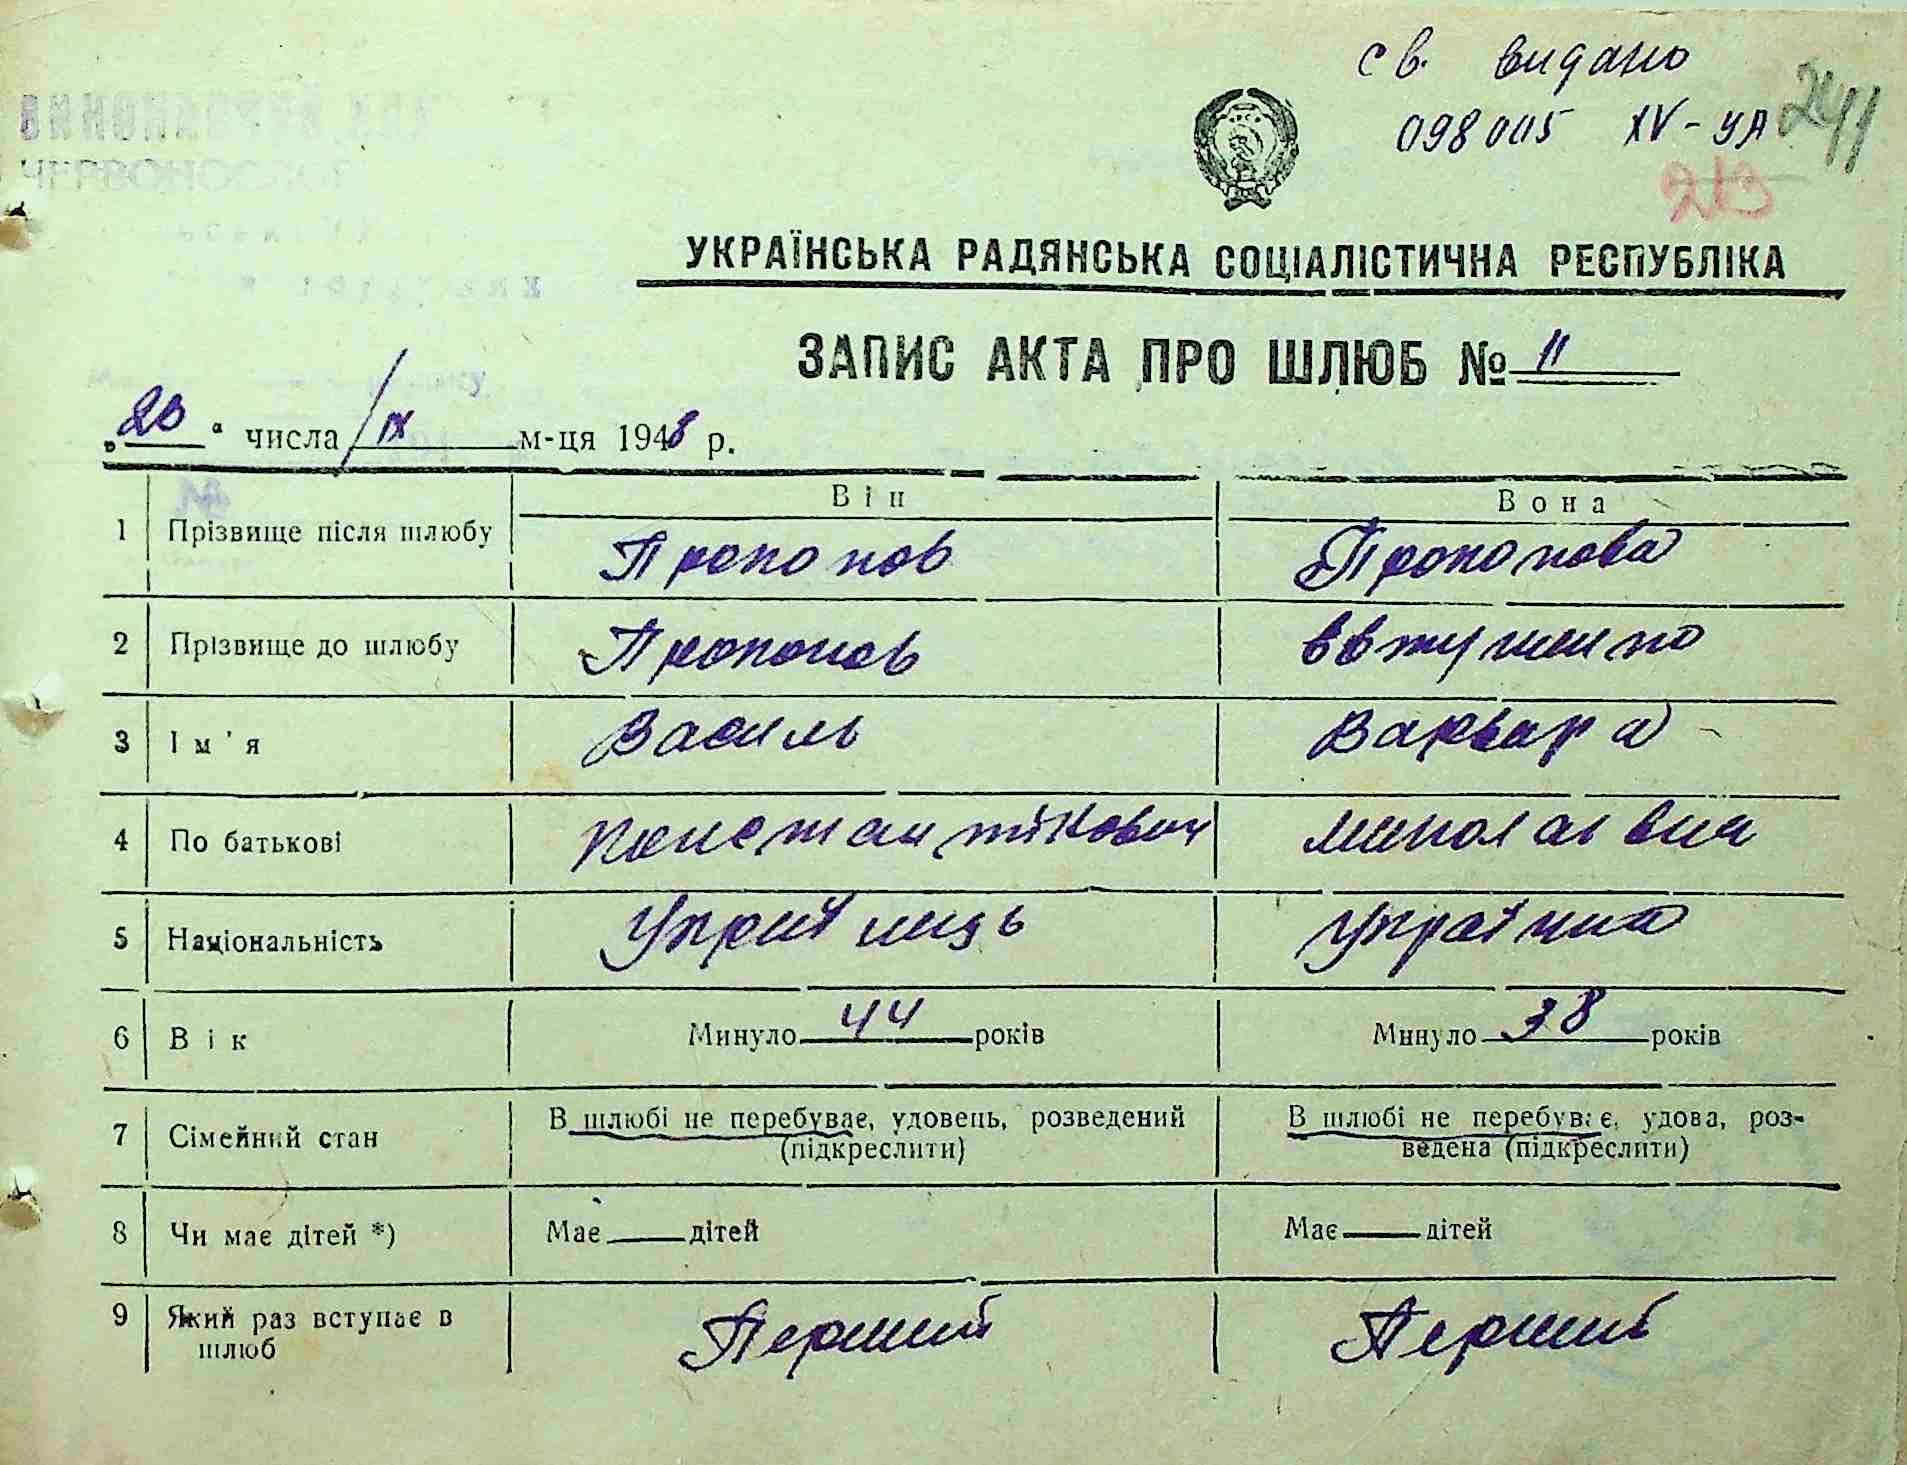 св. видано
098005 XV-УА
241
213
ЧЕРВОНОСЛОБ
УКРАЇНСЬКА РАДЯНСЬКА СОЦІАЛІСТИЧНА РЕСПУБЛІКА
ЗАПИС АКТА ПРО ШЛЮБ № 11
„20“ числа /IX м-ця 1948 р.
Він Вона
1 Прізвище після шлюбу Прокопов Прокопова
2 Прізвище до шлюбу Прокопов
3 Ім'я Василь Варвара
4 По батькові Константінович Миколаївна
5 Національність Українець Українка
6 Вік Минуло 44 років Минуло 38 років
7 Сімейний стан В шлюбі не перебуває, удовець, розведений В шлюбі не перебуває, удова, роз-
(підкреслити) ведена (підкреслити)
8 Чи має дітей *) Має — дітей Має — дітей
9 Який раз вступає в Перший Перший
шлюб